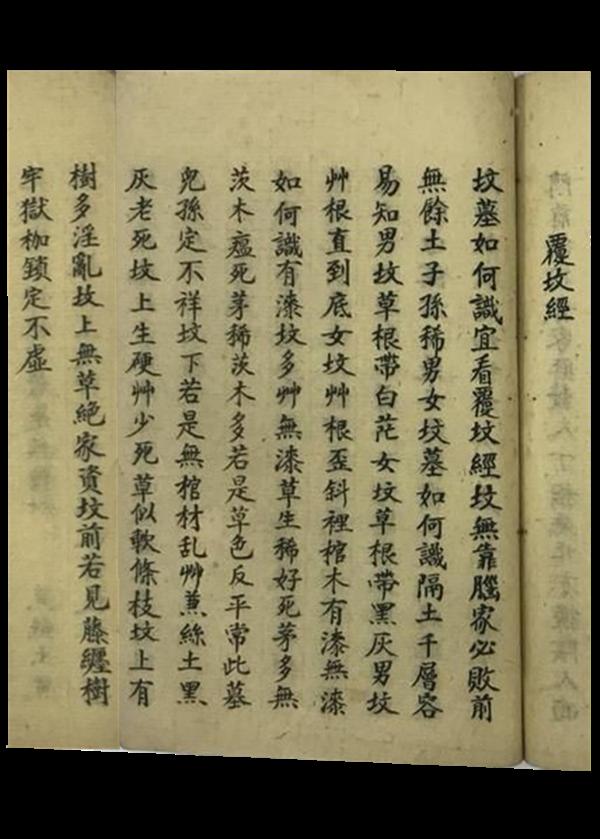 覆坟經
坟墓如何識宜看覆坟經坟無靠腦家必敗前
無餘土子孫稀男女坟墓如何識隔土千層容
易知男坟草根帶白茫女坟草根帶黑灰男坟
艸根直到底女坟艸根歪斜裡棺木有漆無漆
如何識有漆坟多艸無漆草生稀好死茅多無
茨木瘟死茅稀茨木多若是草色反平常此墓
兒孫定不祥坟下若是無棺材乱艸蔥絲土黑
灰老死坟上生硬艸少死草似軟條枝坟上有
樹多淫亂坟上無草絕家資坟前若見藤纏樹
牢獄枷鎖定不虛